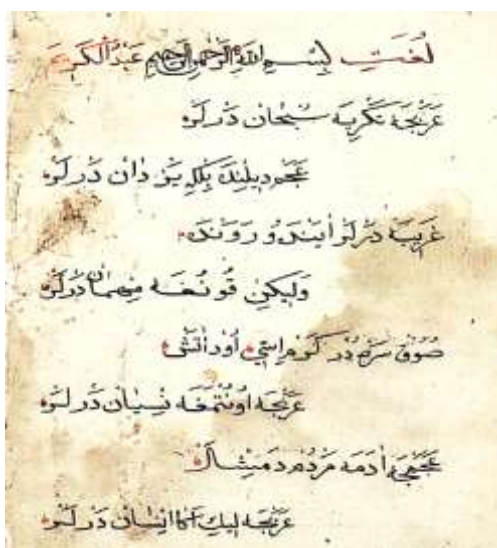 لُغَتِ بِسْمِ اللّٰهِ الرَّحْمٰنِ الرَّحِيمِ عَبْدُ الْكَرِيم
عَرَبْجَه تَكْرِيَه سُبْحَان دَرْلَرْ
عَجَم دِيلِنْدَه بِلْكِه يَزْدَان دَرْلَرْ
غَرِيبَه دَرْلَرْ آيَنْدَه وُ رَوَنْدَه
وَلِيكِنْ قُونُغَه مِهْمَان دَرْلَرْ
صُوُوق سَرْد دُرْ كَرْم اِسِّي اُودْ آتَشْ
عَرَبْجَه اُونُتْمَغَه نِسْيَان دَرْلَرْ
عَجَمْجَه آدَمَه مَرْدُم دَمِشْلَرْ
عَرَبْجَه اِنْسَان دَرْلَرْ